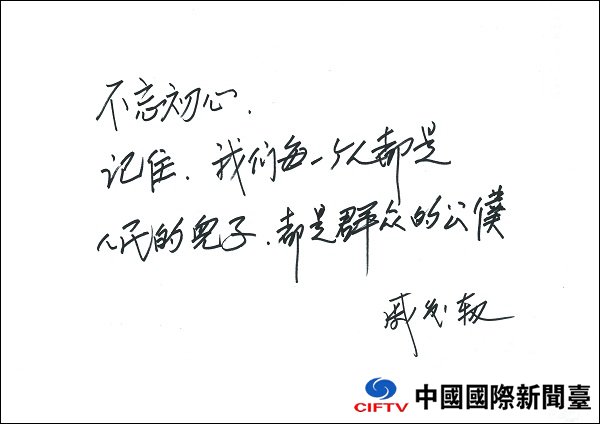 不忘初心.
记住.我们每一个人都是
人民的兒子.都是群众的公僕
戚发轫
CIFTV 中國國際新聞臺